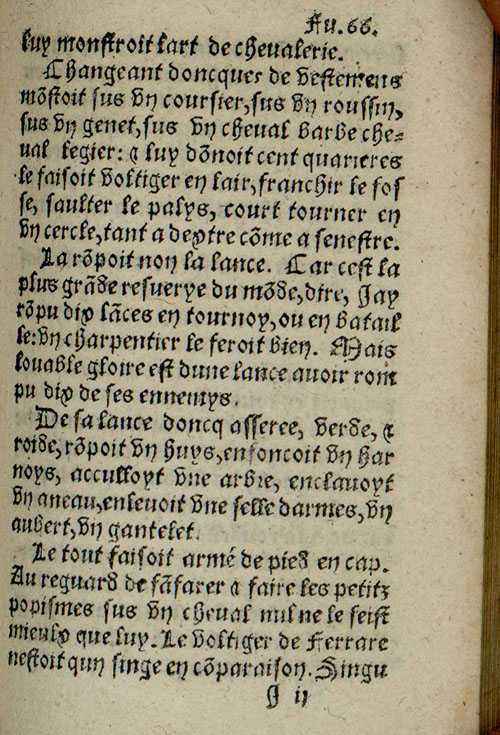 Fu.66.
luy monstroit lart de cheualerie.
Changeant doncques de vestemens
mõstoit sus vn coursier, sus vn roussin,
sus vn genet, sus vn cheual barbe che-
ual legier: & luy dõnoit cent quarieres
le faisoit voltiger en lair, franchir le fos
se, saulter le palys, court tourner en
vn cercle, tant a dextre cõme a senestre.
La rõpoit non la lance. Car cest la
plus grãde resuerye du mõde, dire, Jay
rõpu dix lãces en tournoy, ou en batail
le: vn charpentier le feroit bien. Mais
louable gloire est dune lance auoir rom
pu dix de ses ennemys.
De sa lance doncq asseree, verde, &
roide, rõpoit vn huys, enfoncoit vn har
noys, acculloyt vne arbre, enclauoyt
vn aneau, enleuoit vne selle darmes, vn
aubert, vn gantelet.
Le tout faisoit armé de pied en cap.
Au reguard de fãfarer & faire les petitz
popismes sus vn cheual nul ne le feist
mieulx que luy. Le voltiger de Ferrare
nestoit qun singe en cõparaison. Singu
J ij